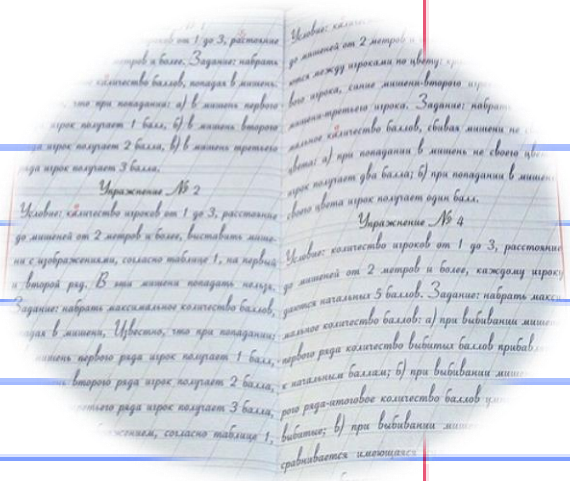 ков от 1 до 3, растояние
тров и более. Задание: набрать
количество баллов, попадая в мишень.
что при попадании: а) в мишень первого
игрок получает 1 балл, б) в мишень второго
да игрок получает 2 балла, в) в мишень третьего
ряда игрок получает 3 балла.
Упражнение № 2
Условие: количество игроков от 1 до 3, расстояние
до мишеней от 2 метров и более, выставить мише-
ни с изображениями, согласно таблице 1, на первый
и второй ряд. В эти мишени попадать нельзя.
Задание: набрать максимальное количество баллов,
попадая в мишени, Известно, что при попадании:
мишень первого ряда игрок получает 1 балл,
второго ряда игрок получает 2 балла,
третьего ряда игрок получает 3 балла,
жением, согласно таблице 1,
Условие:
до мишеней от 2 метров и
ются между игроками по цвету:
вого игрока, синие мишени-второго
мишени-третьего игрока. Задание: набрать
мальное количество баллов, сбивая мишени не
цвета: а) при попадании в мишень не своего цве
игрок получает два балла; б) при попадании в мишень
своего цвета игрок получает один балл.
Упражнение № 4
Условие: количество игроков от 1 до 3, расстояние
до мишеней от 2 метров и более, каждому игроку
даются начальных 5 баллов. Задание: набрать макси
мальное количество баллов: а) при выбивании мишени
первого ряда количество выбитых баллов прибавл
к начальным баллам; б) при выбивании
рого ряда-итоговое количество баллов
выбитые; в) при выбивании
сравнивается имеющаяся